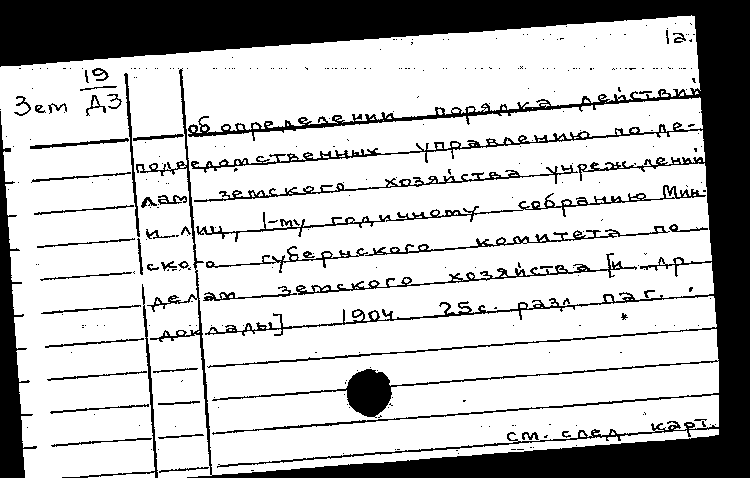 1а.
Зем 19
Д3
об определении порядка действий
подведомственных управлению по де-
лам земского хозяйства учреждений
и лиц, 1-му годичному собранию Мин-
ского губернского комитета по
делам земского хозяйства [и др.
доклады] 1904 25с. разд. паг.
*
см. след. карт.